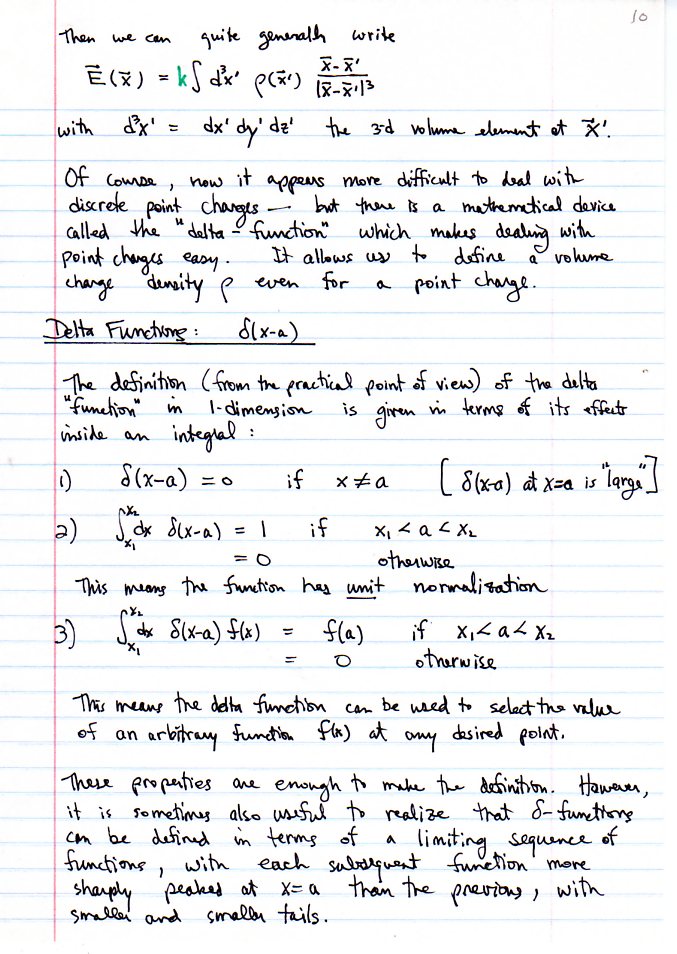 10
Then we can quite generally write
E⃗(x⃗) = k∫ d³x' ρ(x⃗') (x⃗-x⃗')/|x⃗-x⃗'|³
with d³x' = dx' dy' dz' the 3-d volume element at x⃗'.
Of course, now it appears more difficult to deal with
discrete point charges — but there is a mathematical device
called the "delta-function" which makes dealing with
point charges easy. It allows us to define a volume
charge density ρ even for a point charge.
Delta Functions: δ(x-a)
The definition (from the practical point of view) of the delta
"function" in 1-dimension is given in terms of its effects
inside an integral:
1) δ(x-a) = 0 if x ≠ a [ δ(x-a) at x=a is "large" ]
2) ∫_{x₁}^{x₂} dx δ(x-a) = 1 if x₁ < a < x₂
= 0 otherwise
This means the function has unit normalization
3) ∫_{x₁}^{x₂} dx δ(x-a) f(x) = f(a) if x₁ < a < x₂
= 0 otherwise
This means the delta function can be used to select the value
of an arbitrary function f(x) at any desired point.
These properties are enough to make the definition. However,
it is sometimes also useful to realize that δ-functions
can be defined in terms of a limiting sequence of
functions, with each subsequent function more
sharply peaked at x=a than the previous, with
smaller and smaller tails.